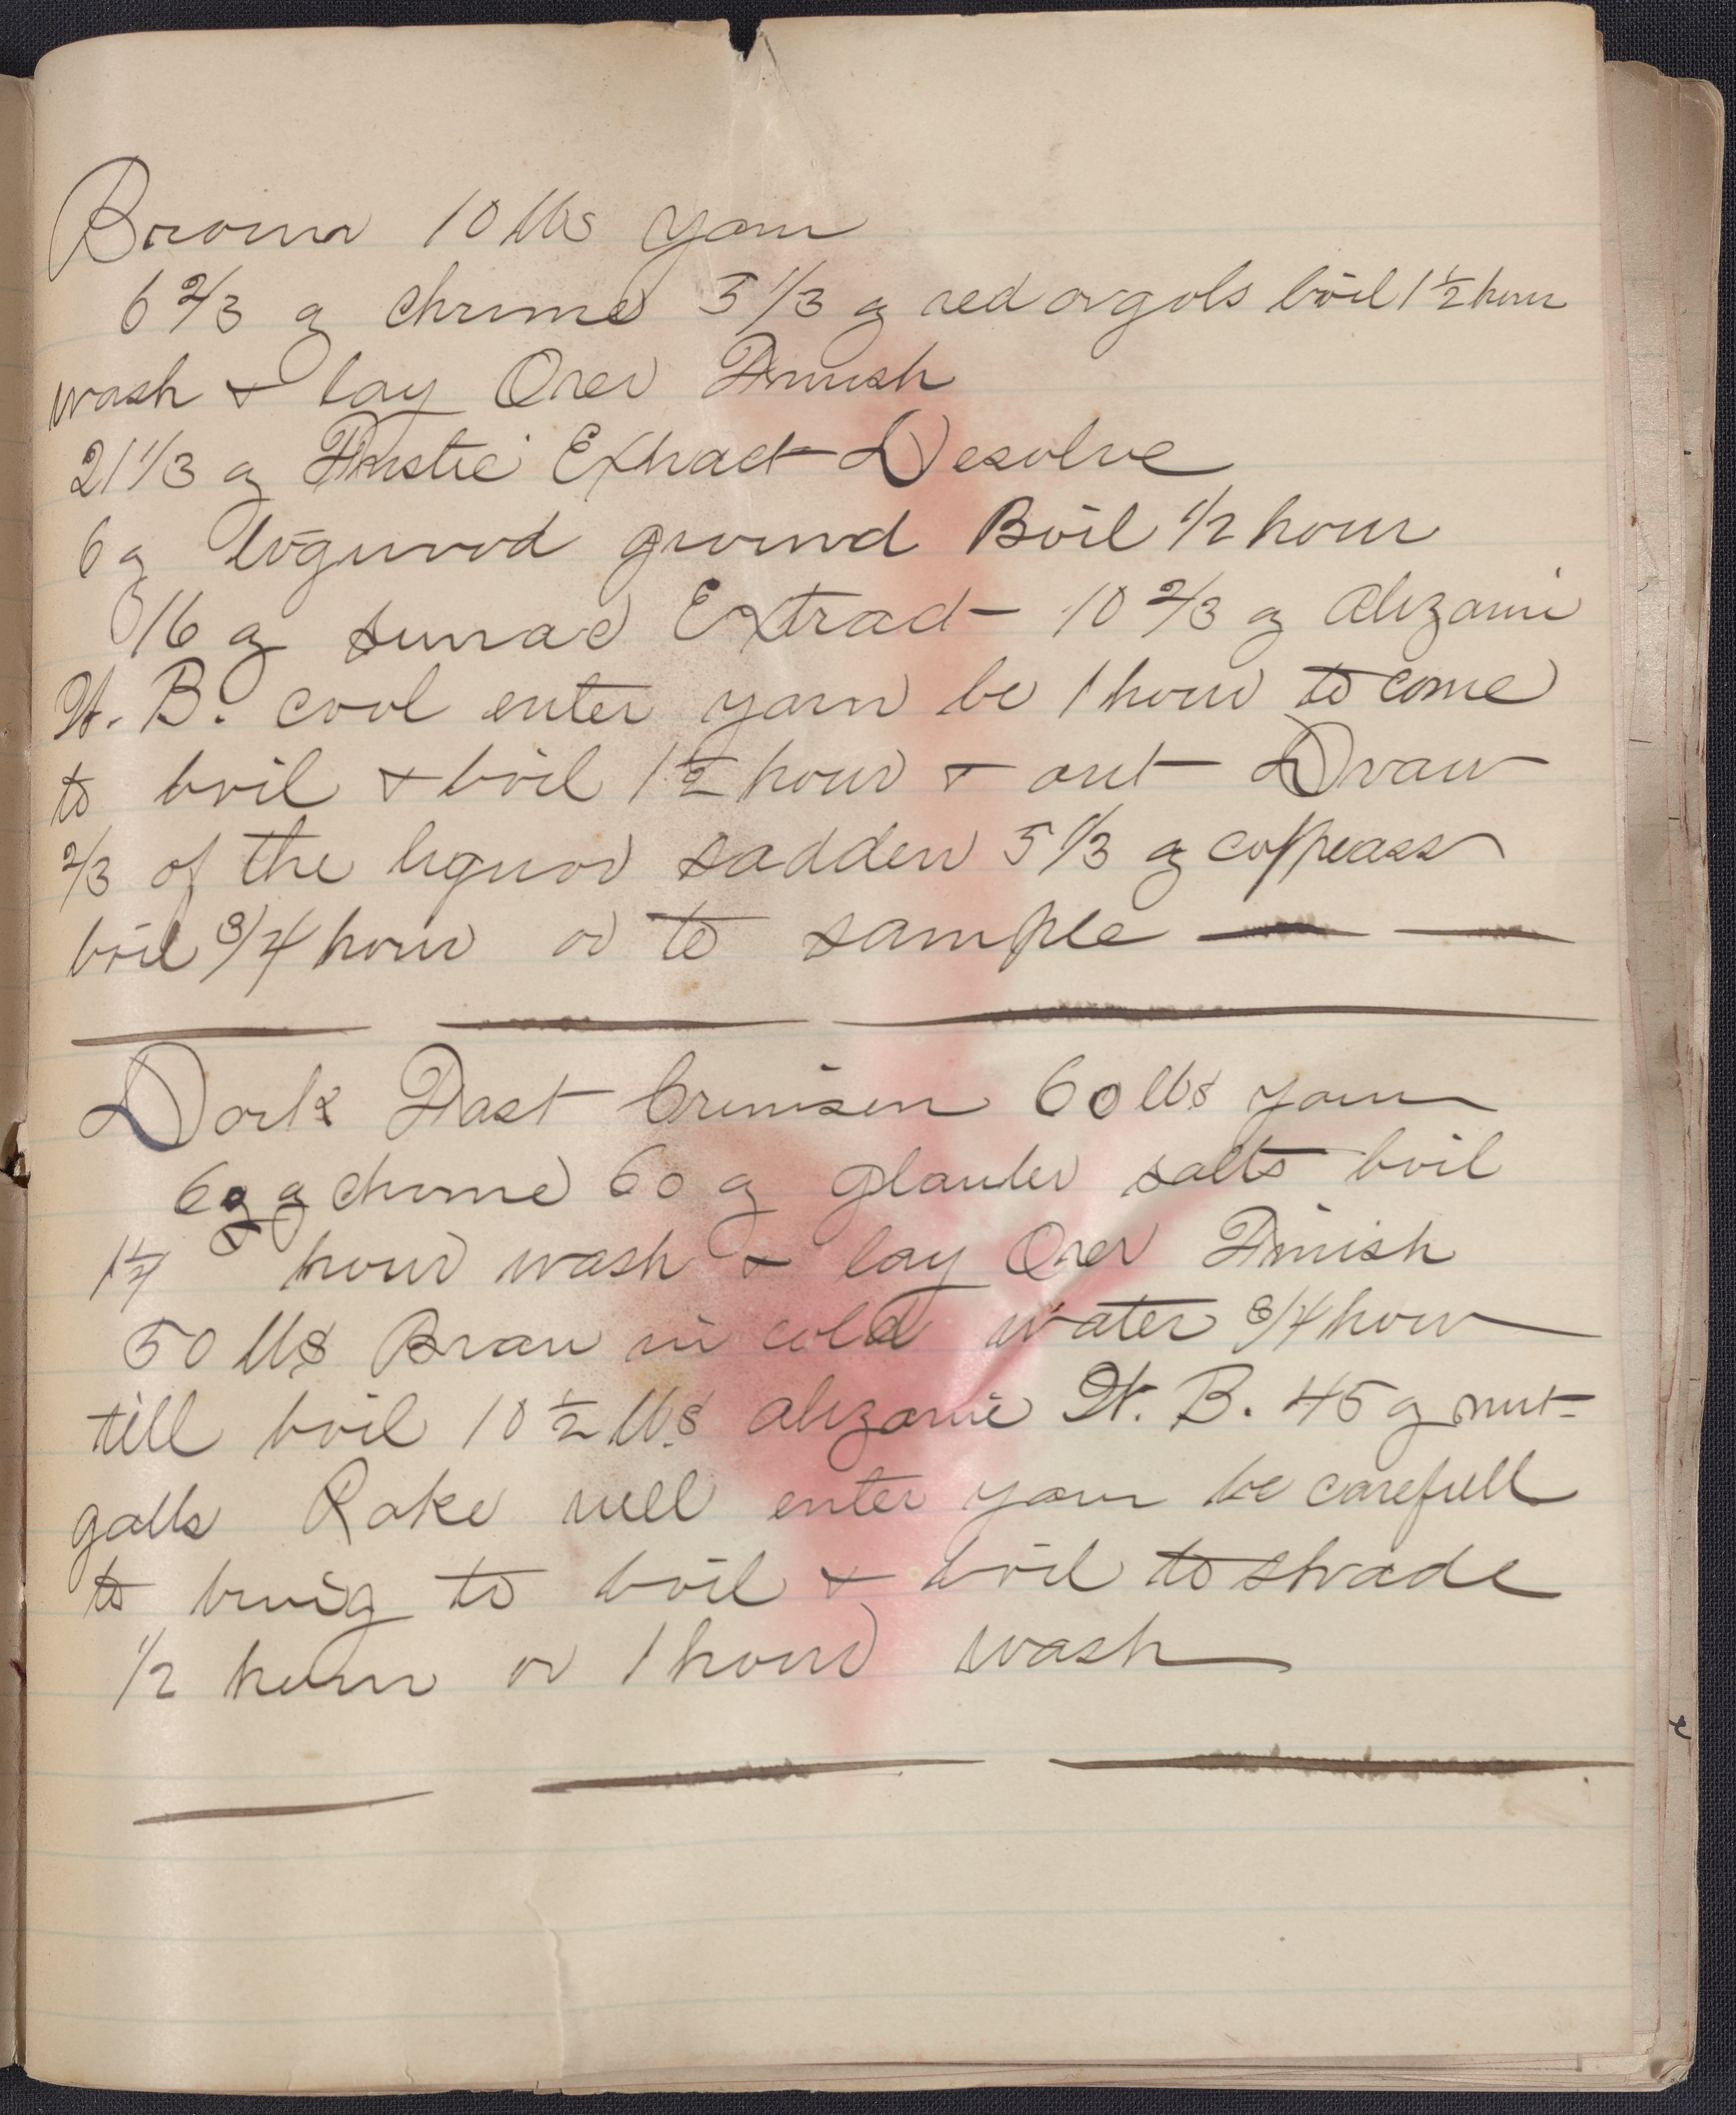 Brown 10 lbs yarn
6 2/3 ℥ chrome 5 1/3 ℥ red argols boil 1 1/2 hour
wash & lay Over Finish
21 1/3 ℥ Fustic Extract Desolve
6 ℥ logwood ground Boil 1/2 hour
16 ℥ sumac Extract 10 2/3 ℥ alizarine
W. B. cool enter yarn be 1 hour to come
to boil & boil 1 1/2 hour & out Draw
2/3 of the liquor sadden 5 1/3 ℥ coppeass
boil 3/4 hour or to sample
Dark Fast Crimisen 60 lbs yarn
℥ chrome 60 ℥ glauber salts boil
hour wash & lay Over Finish
50 lbs Bran in cold water 3/4 hour
till boil 10 1/2 lbs alizarine W. B. 45 ℥ nut-
galls Rake well enter yarn be carefull
to bring to boil & boil to shade
1/2 hour or 1 hour wash